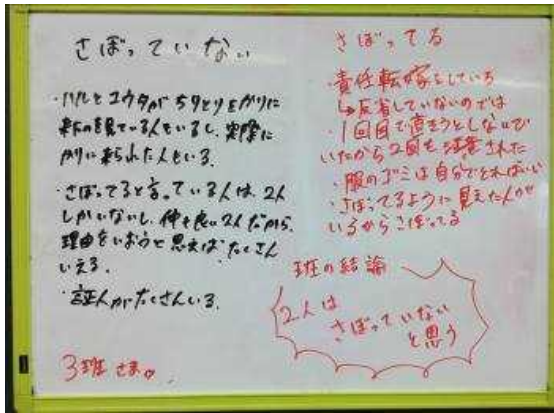 さぼっていない
・ハルとユウタがちりとりをかりに
来たのを見ている人もいるし、実際に
かりに来られた人もいる。
・さぼってると言っている人は、2人
しかいないし、仲も良い2人だから、
理由をいおうと思えばたくさん
いえる。
・証人がたくさんいる。
3班 さま。
さぼってる
責任転嫁をしている
↳反省していないのでは
・1回目で直そうとしないで
いたから2回も注意された
・服のゴミは自分でとればいい
・さぼってるように見えた人が
いるからさぼってる
班の結論
2人は
さぼっていない
と思う